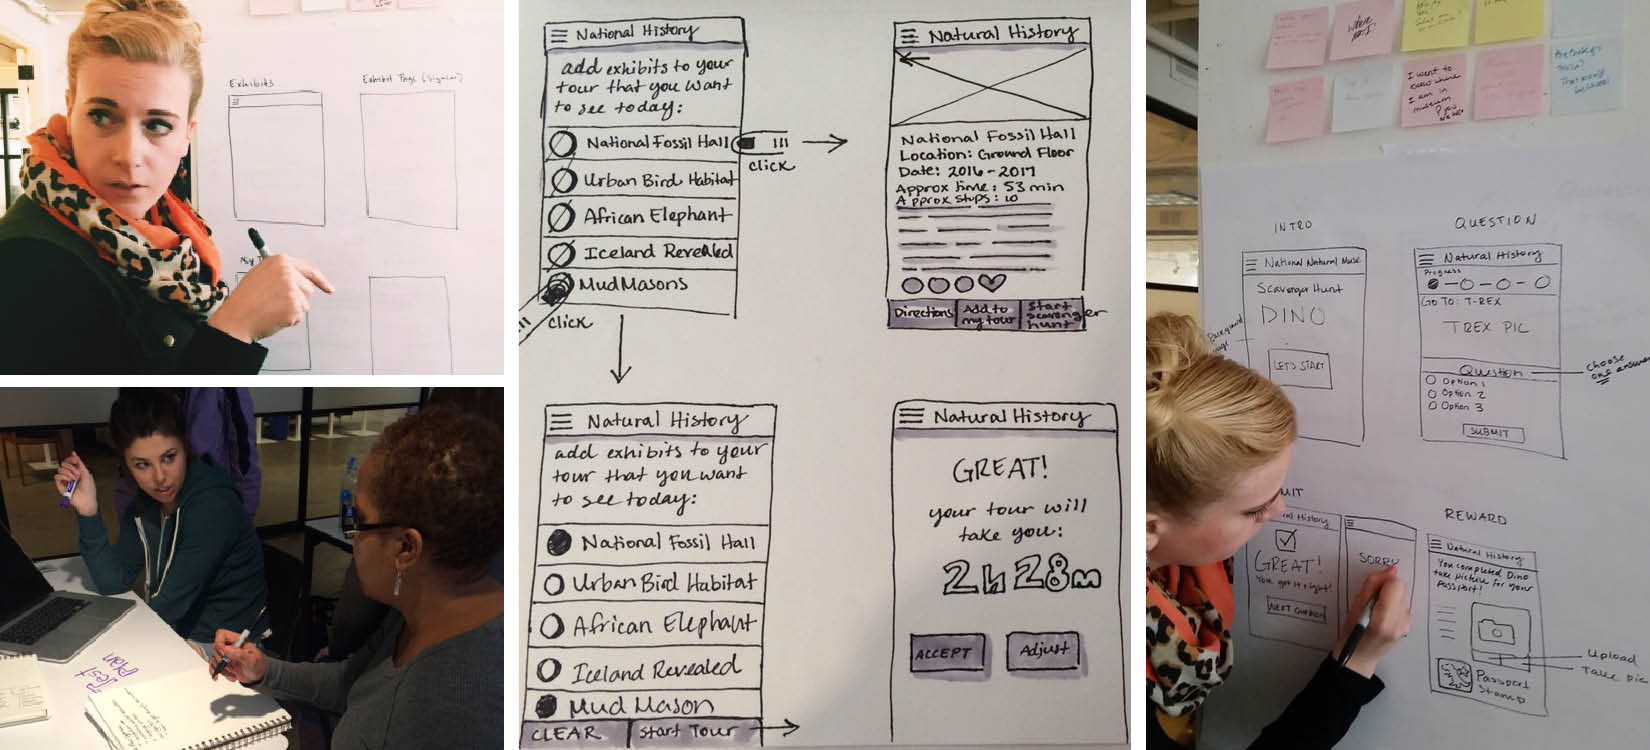 Exhibits
National History
add exhibits to your
tour that you want
to see today:
National Fossil Hall
click
Urban Bird Habitat
African Elephant
Iceland Revealed
Mud Masons
click
Natural History
National Fossil Hall
Location: Ground Floor
Date: 2016-2017
Approx time: 53 min
Approx stops: 10
Directions
Add to
my tour
Start
scavenger
hunt
Natural History
add exhibits to your
tour that you want
to see today:
National Fossil Hall
Urban Bird Habitat
African Elephant
Iceland Revealed
Mud Mason
CLEAR
Start Tour
Natural History
GREAT!
your tour will
take you:
2h 28m
ACCEPT
Adjust
Test
Plan
I want to
know where
I am in
museum
INTRO
National Natural Muse
Scavenger Hunt
DINO
LET'S START
QUESTION
Natural History
Progress
GO TO: T-REX
TREX PIC
Question
choose
one answer
Option 1
Option 2
Option 3
SUBMIT
MIT
ral History
GREAT!
You got it right!
NEXT QUESTION
SORRY
REWARD
Natural History
You completed Dino
take picture for your
Passport!
Upload
Take pic
Passport
Stamp